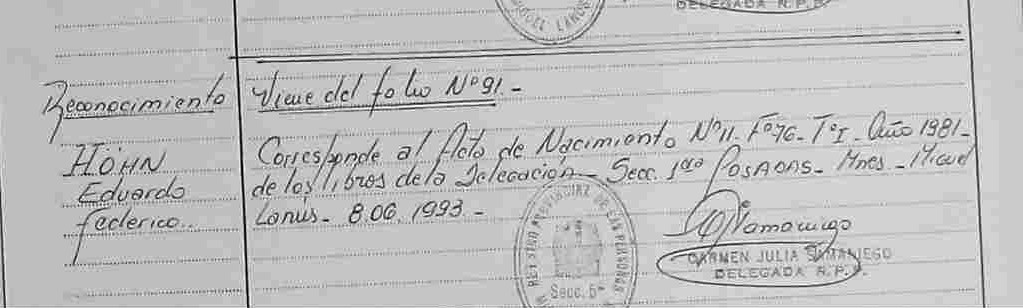 MIGUEL LANUS
DELEGADA R.P.
Reconocimiento
HÖHN
Eduardo
federico..
Viene del folio Nº 91.-
Corresponde al Acta de Nacimiento Nº 11 - Fº 76 - Tº I - Año 1981 -
de los libros de la Delegación - Secc. 1ra POSADAS - Mnes - Miguel
Lanús - 8.06.1993.-
REGISTRO PROVINCIAL DE LAS PERSONAS
Secc. 5ª
CARMEN JULIA SAMANIEGO
DELEGADA R.P.P.